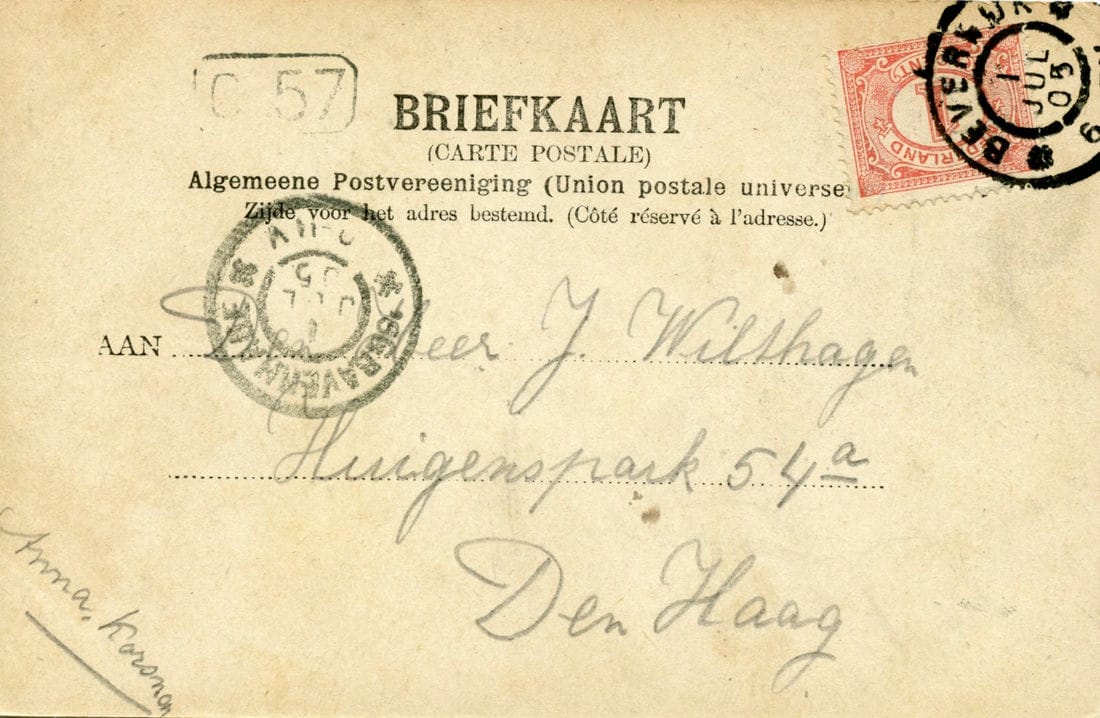 C 57
BRIEFKAART
(CARTE POSTALE)
Algemeene Postvereeniging (Union postale universe
Zijde voor het adres bestemd. (Côté réservé à l'adresse.)
BEVERWIJK
1 JUL 05
'SGRAVENHAGE
AAN
Heer J. Wilthagen
Huigenspark 54a
Den Haag
Anna. Korsman